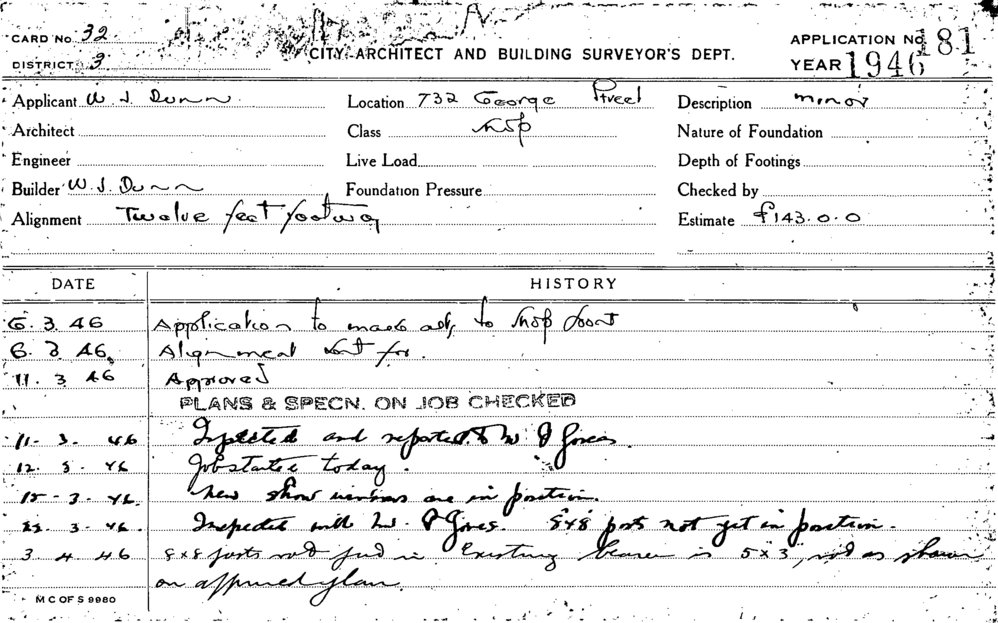 CARD No. 32.
DISTRICT. 3.
CITY ARCHITECT AND BUILDING SURVEYOR'S DEPT.
APPLICATION No. 81
YEAR 1946
Applicant W J Dunn Location 732 George Street Description minor
Architect Class shop Nature of Foundation
Engineer Live Load Depth of Footings
Builder W. J. Dunn Foundation Pressure Checked by
Alignment Twelve feet footway Estimate £143.0.0
DATE HISTORY
6. 3. 46 Application to to shop front
6. 3. 46. Alignment sent for.
11. 3. 46 Approved
PLANS & SPECN. ON JOB CHECKED
11. 3. 46 Inspected and reported to Mr Jones.
12. 3. 46 Job started today.
15 - 3. 46. New show windows are in position.
22. 3. 46. Inspected with Mr. Jones. 8x8 posts not yet in position.
3 4 46 8x8 posts not in Existing bearer is 5x3, not as shown
on approved plan.
M C OF S 9980